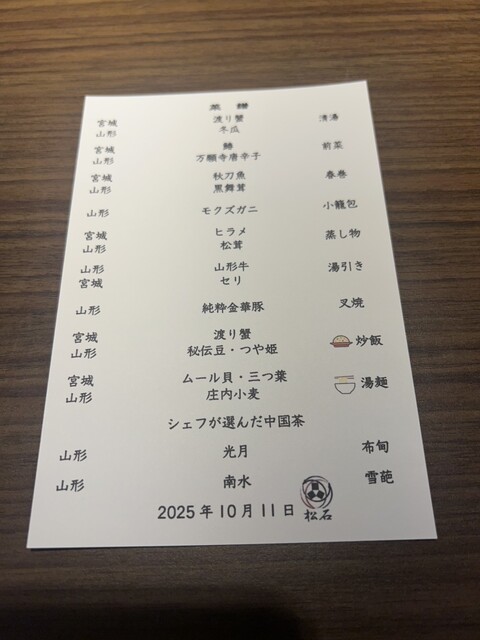 菜 譜
宮城 渡り蟹 清湯
山形 冬瓜
宮城 鰆 前菜
山形 万願寺唐辛子
宮城 秋刀魚 春巻
山形 黒舞茸
山形 モクズガニ 小籠包
宮城 ヒラメ 蒸し物
山形 松茸
山形 山形牛 湯引き
宮城 セリ
山形 純粋金華豚 叉焼
宮城 渡り蟹 炒飯
山形 秘伝豆・つや姫
宮城 ムール貝・三つ葉 湯麺
山形 庄内小麦
シェフが選んだ中国茶
山形 光月 布甸
山形 南水 雪葩
2025年10月11日 松石